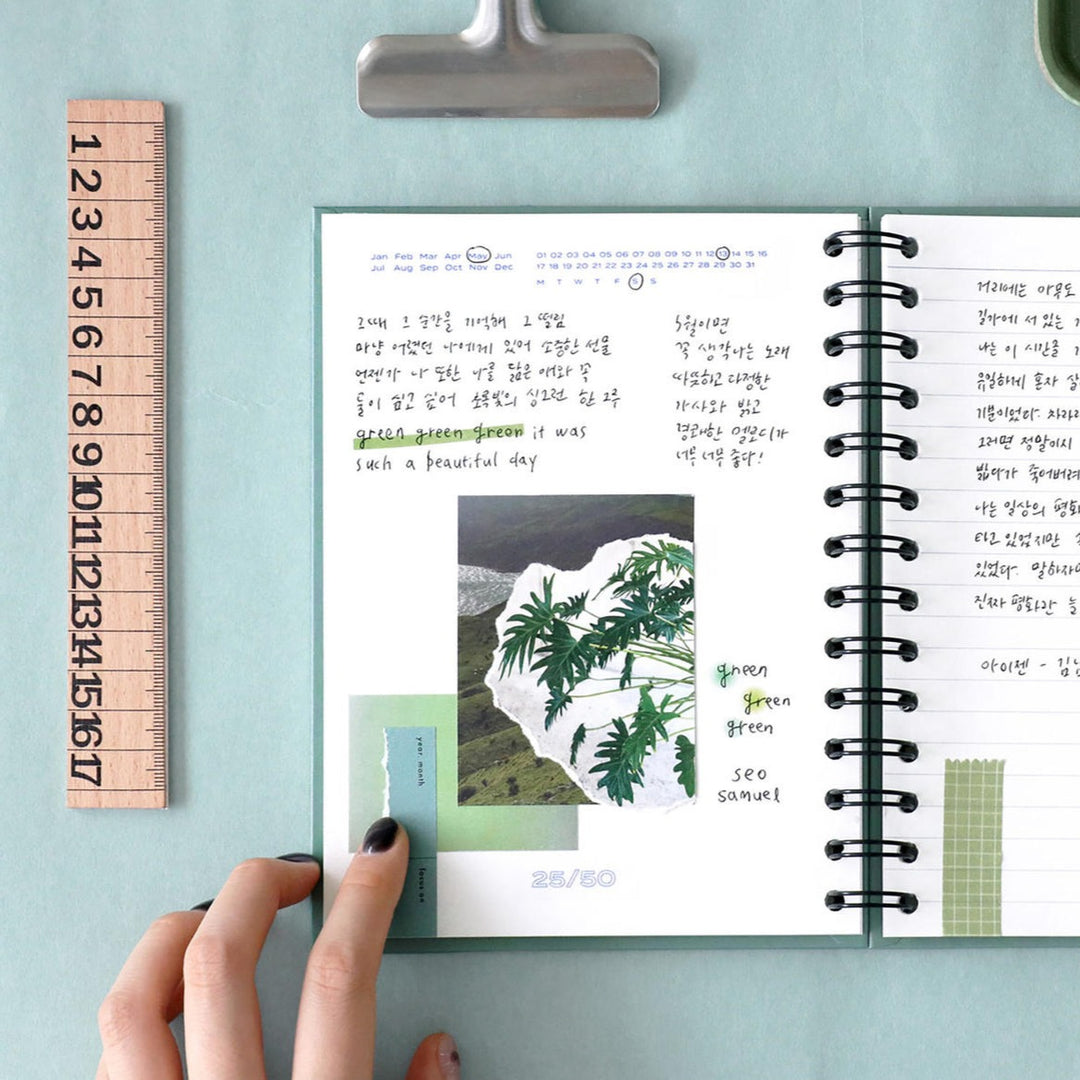 1
2
3
4
5
6
7
8
9
10
11
12
13
14
15
16
17
Jan Feb Mar Apr May Jun
Jul Aug Sep Oct Nov Dec
01 02 03 04 05 06 07 08 09 10 11 12 13 14 15 16
17 18 19 20 21 22 23 24 25 26 27 28 29 30 31
M T W T F S S
그때 그 순간을 기억해 그 떨림
마냥 어렸던 나에게 있어 소중한 선물
언젠가 나 또한 나를 닮은 애와 꼭
둘이 쉬고 싶어 초록빛의 싱그런 한 그루
green green green it was
such a beautiful day
5월이면
꼭 생각나는 노래
따뜻하고 다정한
가사와 밝고
경쾌한 멜로디가
너무 너무 좋다!
green
green
green
seo
samuel
year. month
focus on
25/50
거리에는 아무도
길가에 서 있는
나는 이 시간을
유일하게 혼자 살
기분이었다. 차라리
그러면 정말이지
밟다가 죽어버려
나는 일상의 평화
타고 있었지만
있었다. 말하자면
진짜 평화란 늘
아이젠 - 김남